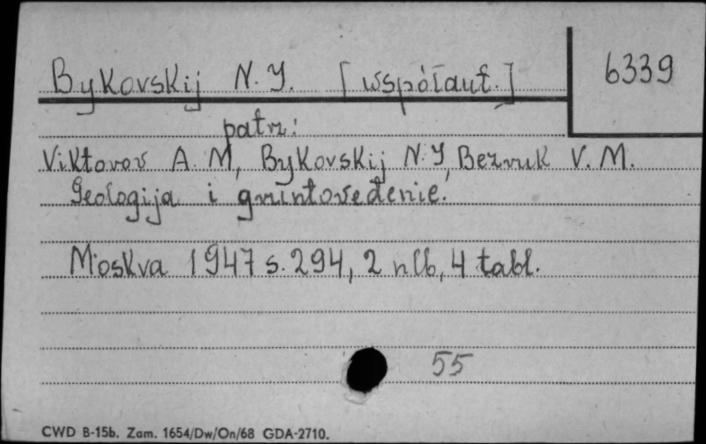 Bykovskij N. I. [współaut.]
6339
patrz:
Viktorov A. M, Bykovskij N. I, Bezruk V. M.
Geologija i gruntovedenie.
Moskva 1947 s. 294, 2 nlb, 4 tabl.
55
CWD B-15b. Zam. 1654/Dw/On/68 GDA-2710.